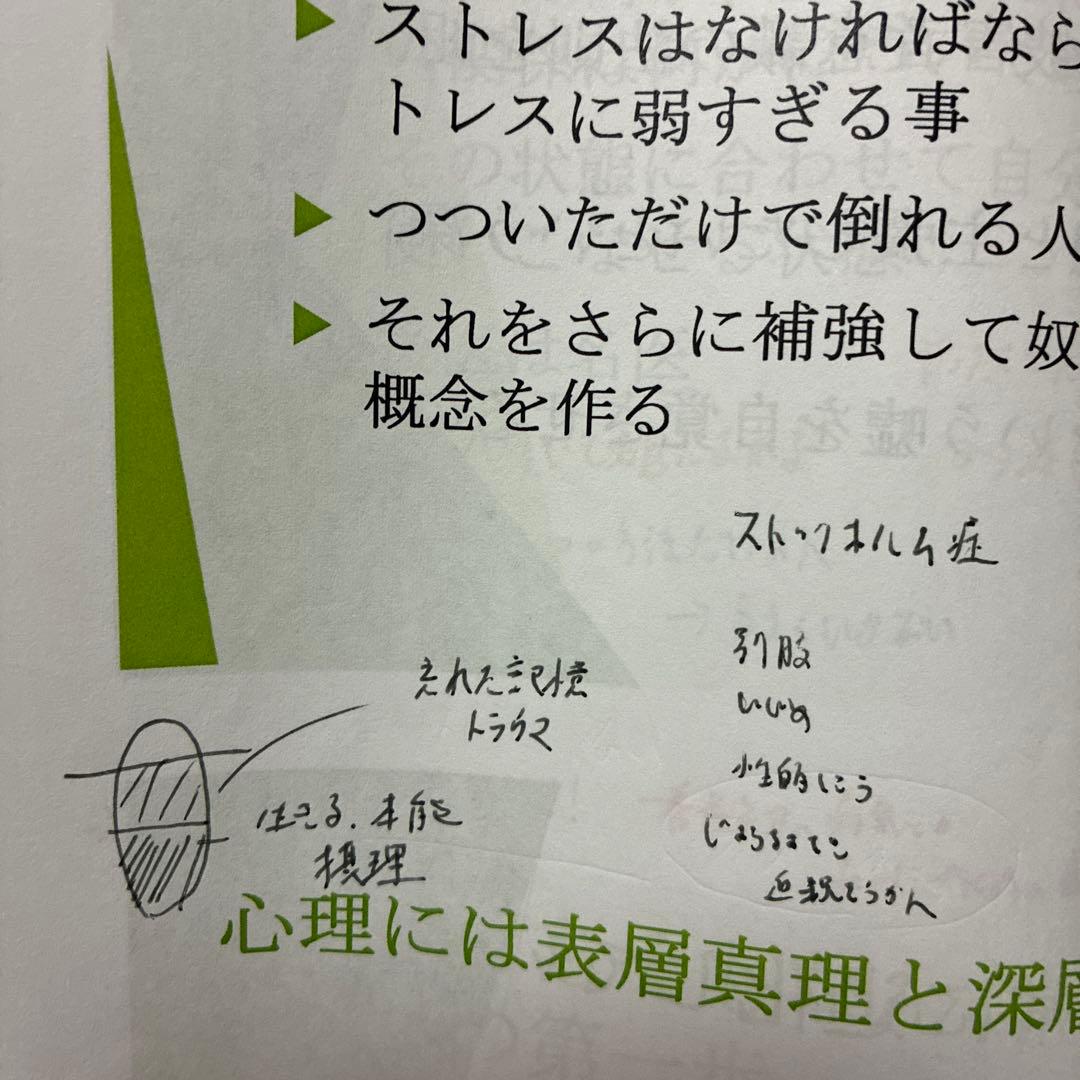 ストレスはなければなら
トレスに弱すぎる事
つついただけで倒れる人
それをさらに補強して奴
概念を作る
ストックホルム症
忘れた記憶
トラウマ
いじめ
生きる、本能
摂理
心理には表層真理と深層